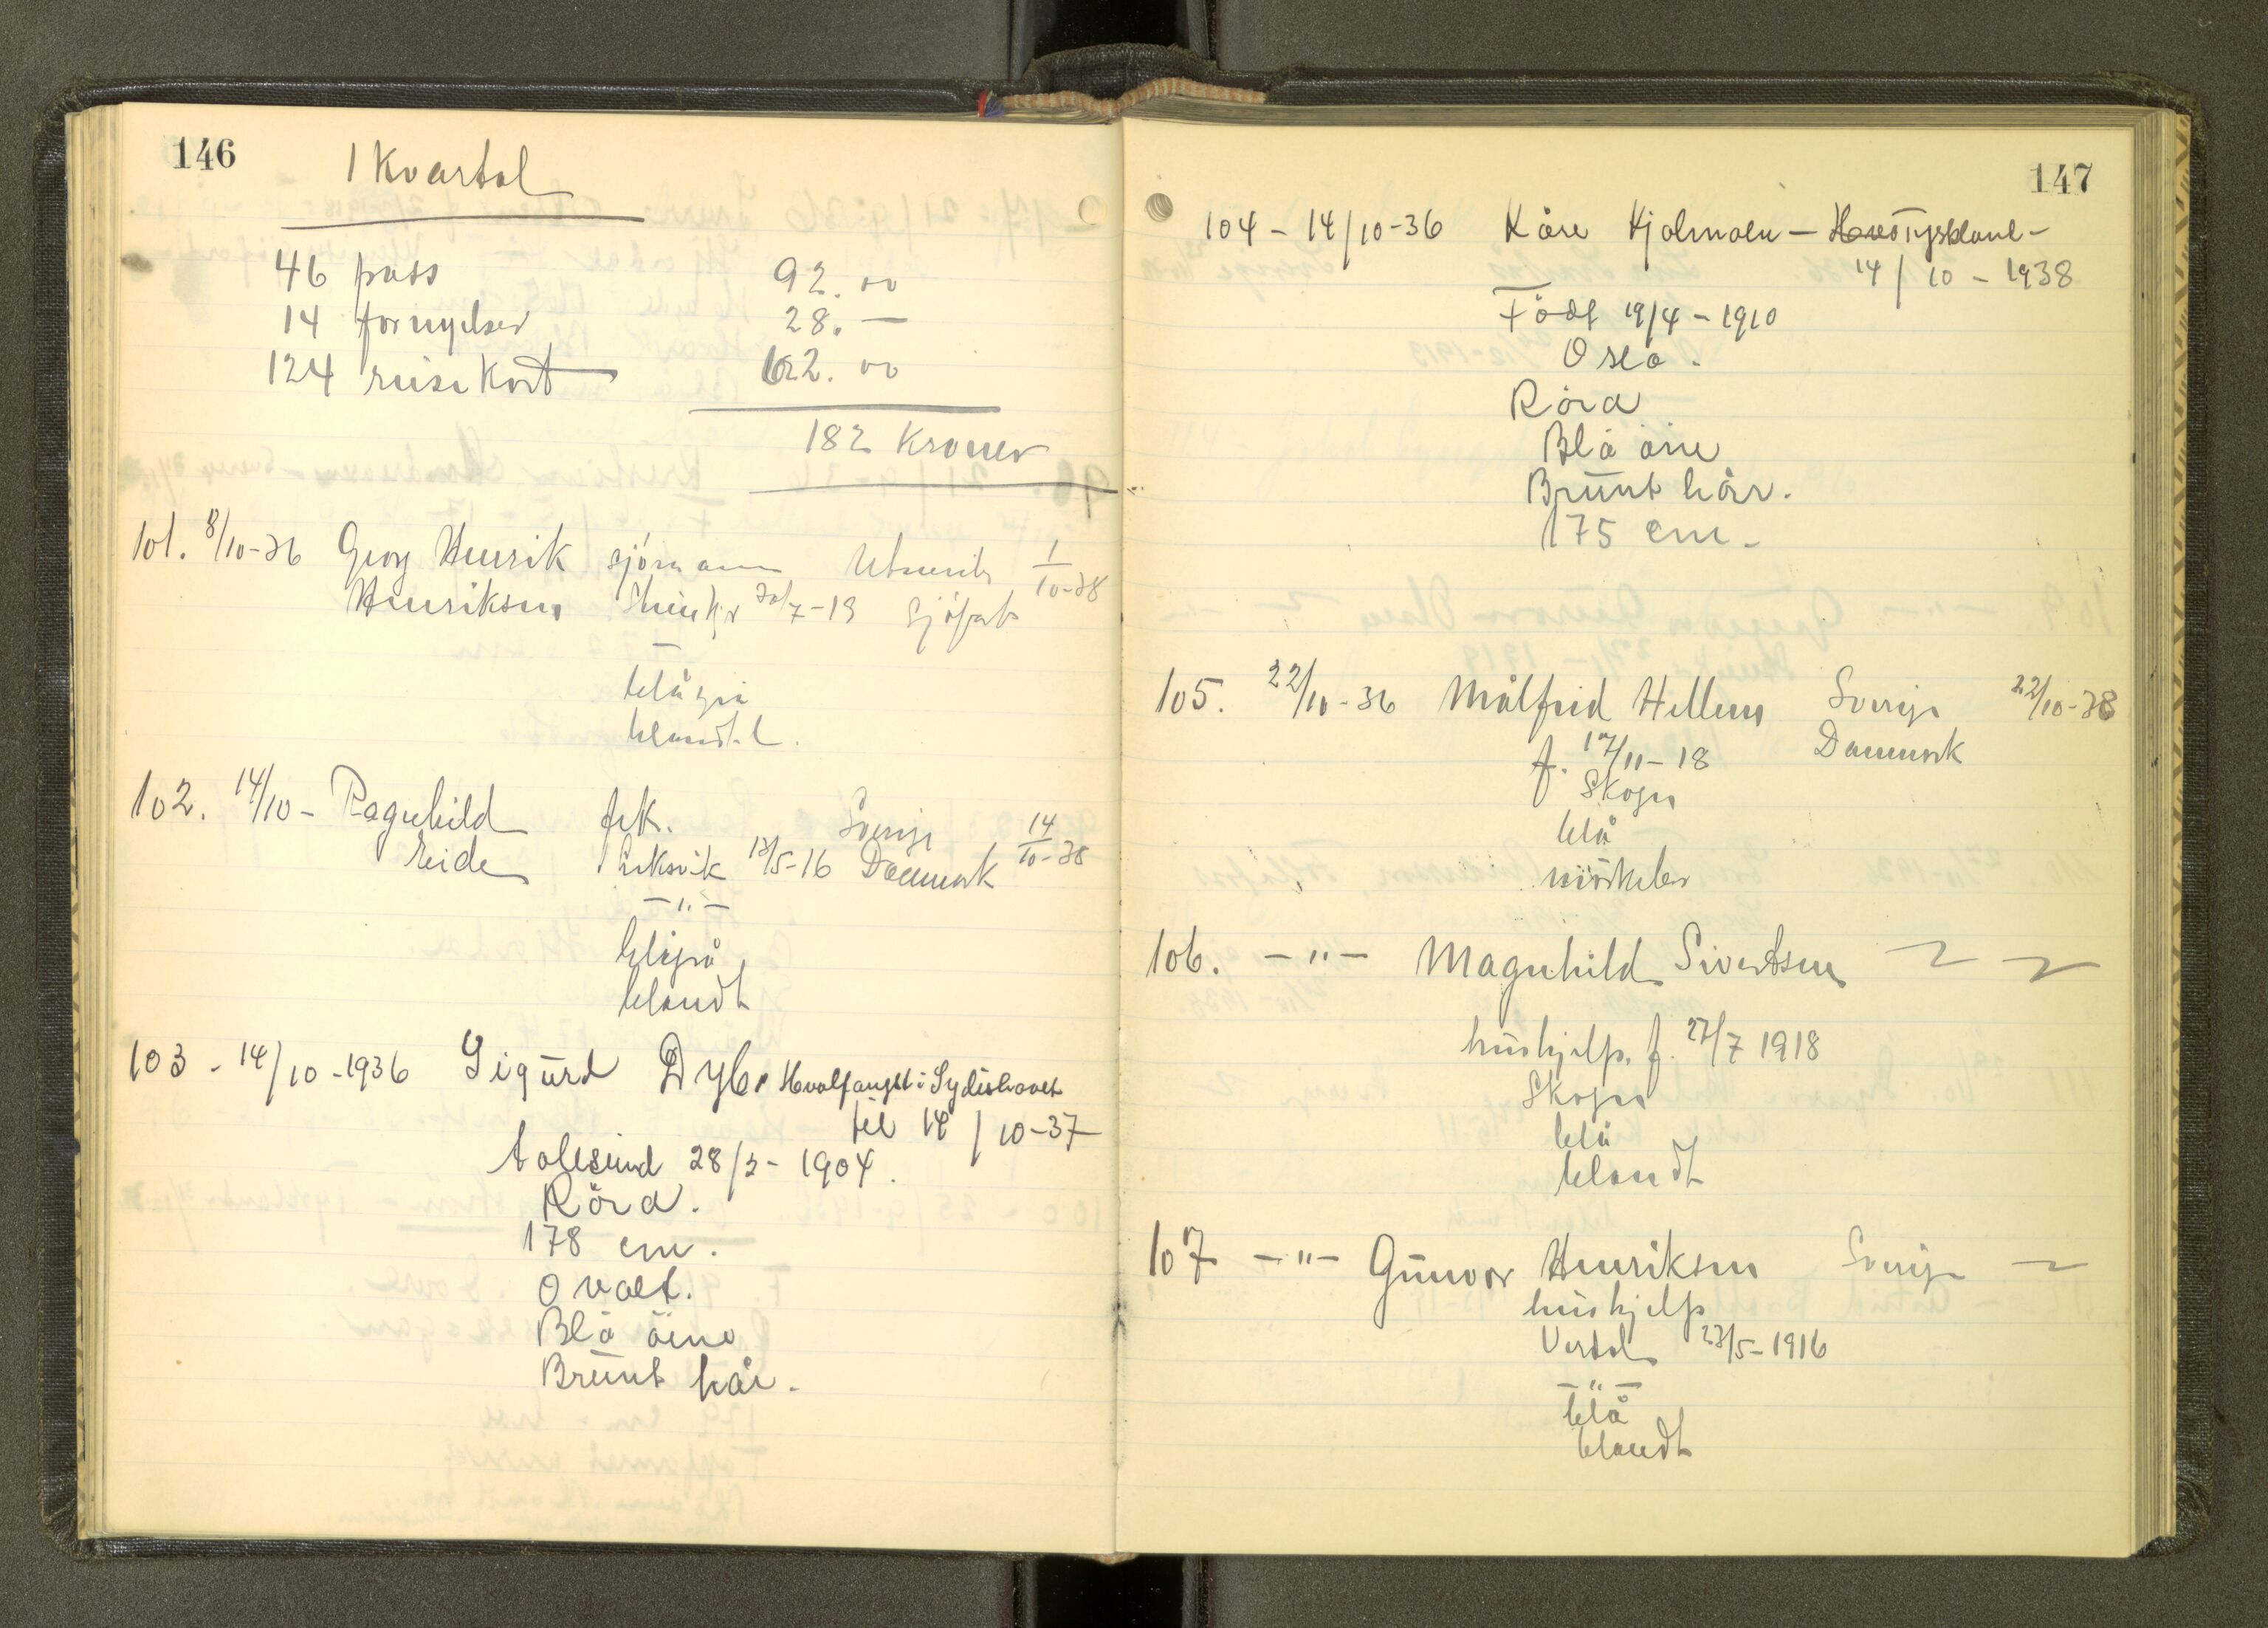 146
1 Kvartal
46 pass 92.00
14 fornyelser 28.—
124 reisekort 62.00
182 Kroner
101. 8/10-36 Georg Henrik sjömann Utenriks 1/10-38
Henriksen Steinkjer 30/7-19 Sjöfart
—
blågrå
blandt.
102. 14/10- Ragnhild frk. Sverige 14/10-38
Eide Leksvik 13/5-16 Danmark
-"-
blågrå
blondt
103 - 14/10-1936 Sigurd Dyb. Hvalfangst i Sydishavet
til 14/10-37
Aalesund 28/3-1904.
Röra.
178 cm.
Ovalt.
Blå öine
Brunt hår.
147
104 - 14/10-36 Kåre Hjalmøen - Tyskland -
14/10-1938
Född 19/4-1910
Oslo.
Röra
Blå öine
Brunt hår.
175 cm.
105. 22/10-36 Målfrid Hellem Sverige 22/10-38
f. 17/11-18 Danmark
Skogn
blå
mörkebr
106. -"- Magnhild Sivertsen ~ ~
hushjelp. f. 27/7 1918
Skogn
blå
blondt
107 -"- Gunvor Henriksen Sverige ~
hushjelp
Verdal 23/5-1916
-"-
blå
blondt